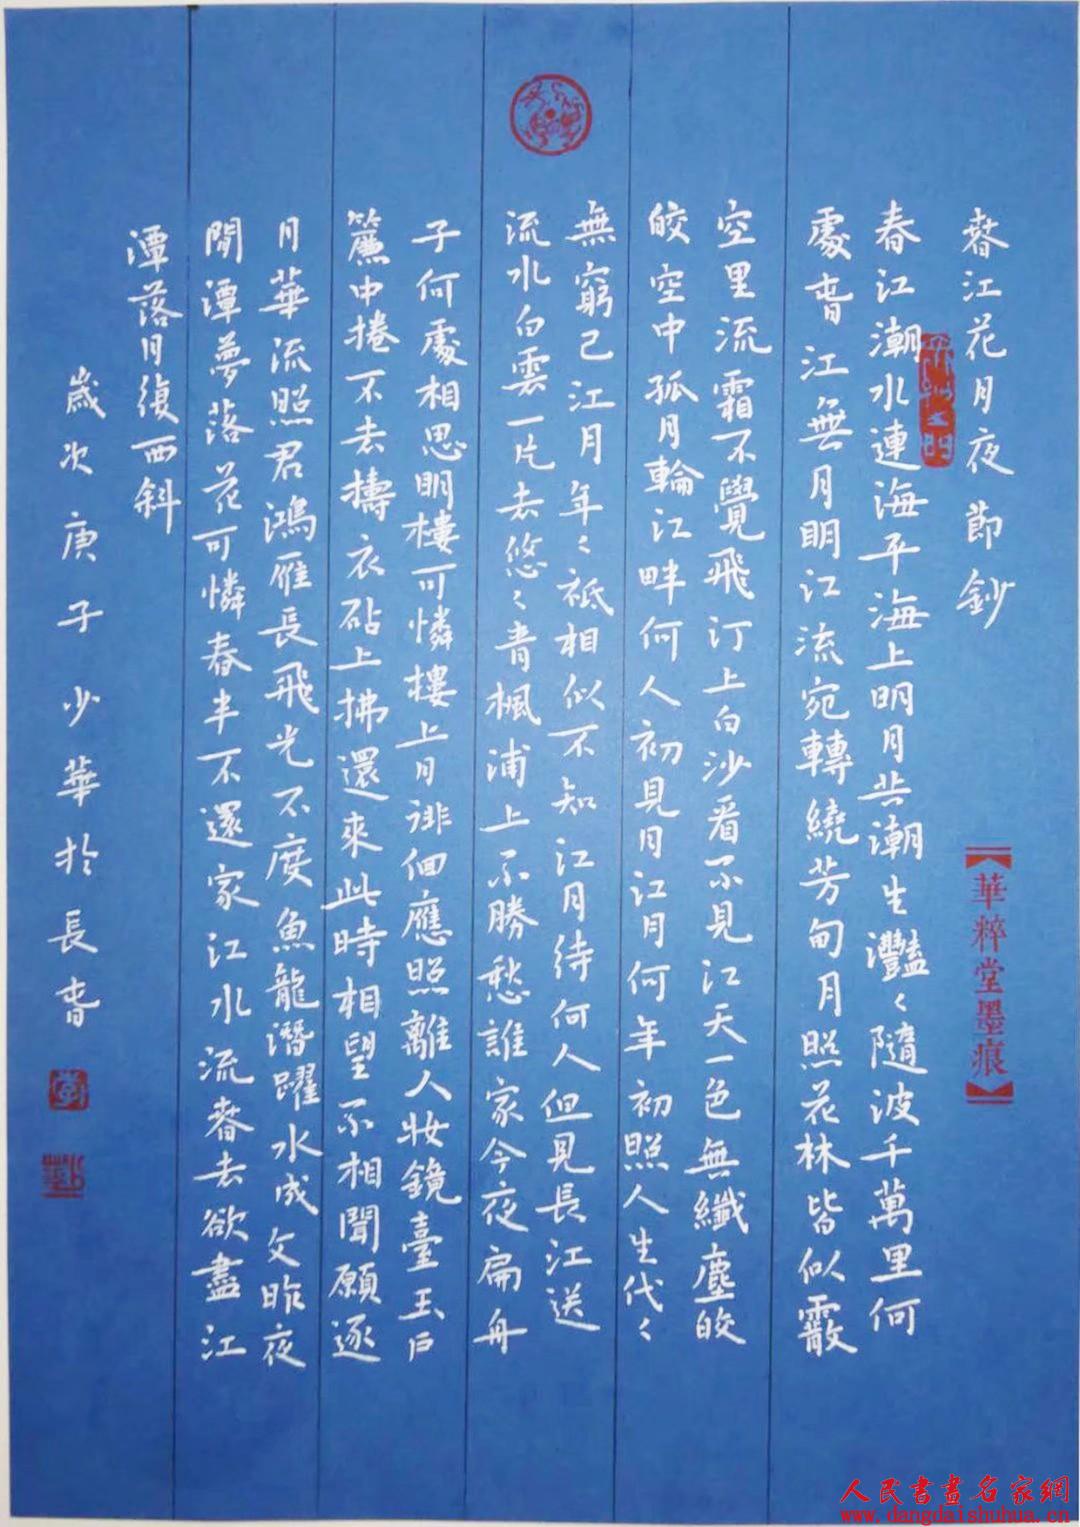 春江花月夜節鈔
春江潮水連海平海上明月共潮生灩〻隨波千萬里何
處春江無月明江流宛轉繞芳甸月照花林皆似霰
空里流霜不覺飛汀上白沙看不見江天一色無纖塵皎
皎空中孤月輪江畔何人初見月江月何年初照人生代〻
無窮已江月年〻祇相似不知江月待何人但見長江送
流水白雲一片去悠〻青楓浦上不勝愁誰家今夜扁舟
子何處相思明樓可憐樓上月徘徊應照離人妝鏡臺玉戶
簾中捲不去擣衣砧上拂還來此時相望不相聞願逐
月華流照君鴻雁長飛光不度魚龍潛躍水成文昨夜
閒潭夢落花可憐春半不還家江水流春去欲盡江
潭落月復西斜
歲次庚子少華於長春
【華粹堂墨痕】
人民書畫名家網
www.dangdaishuhua.cn